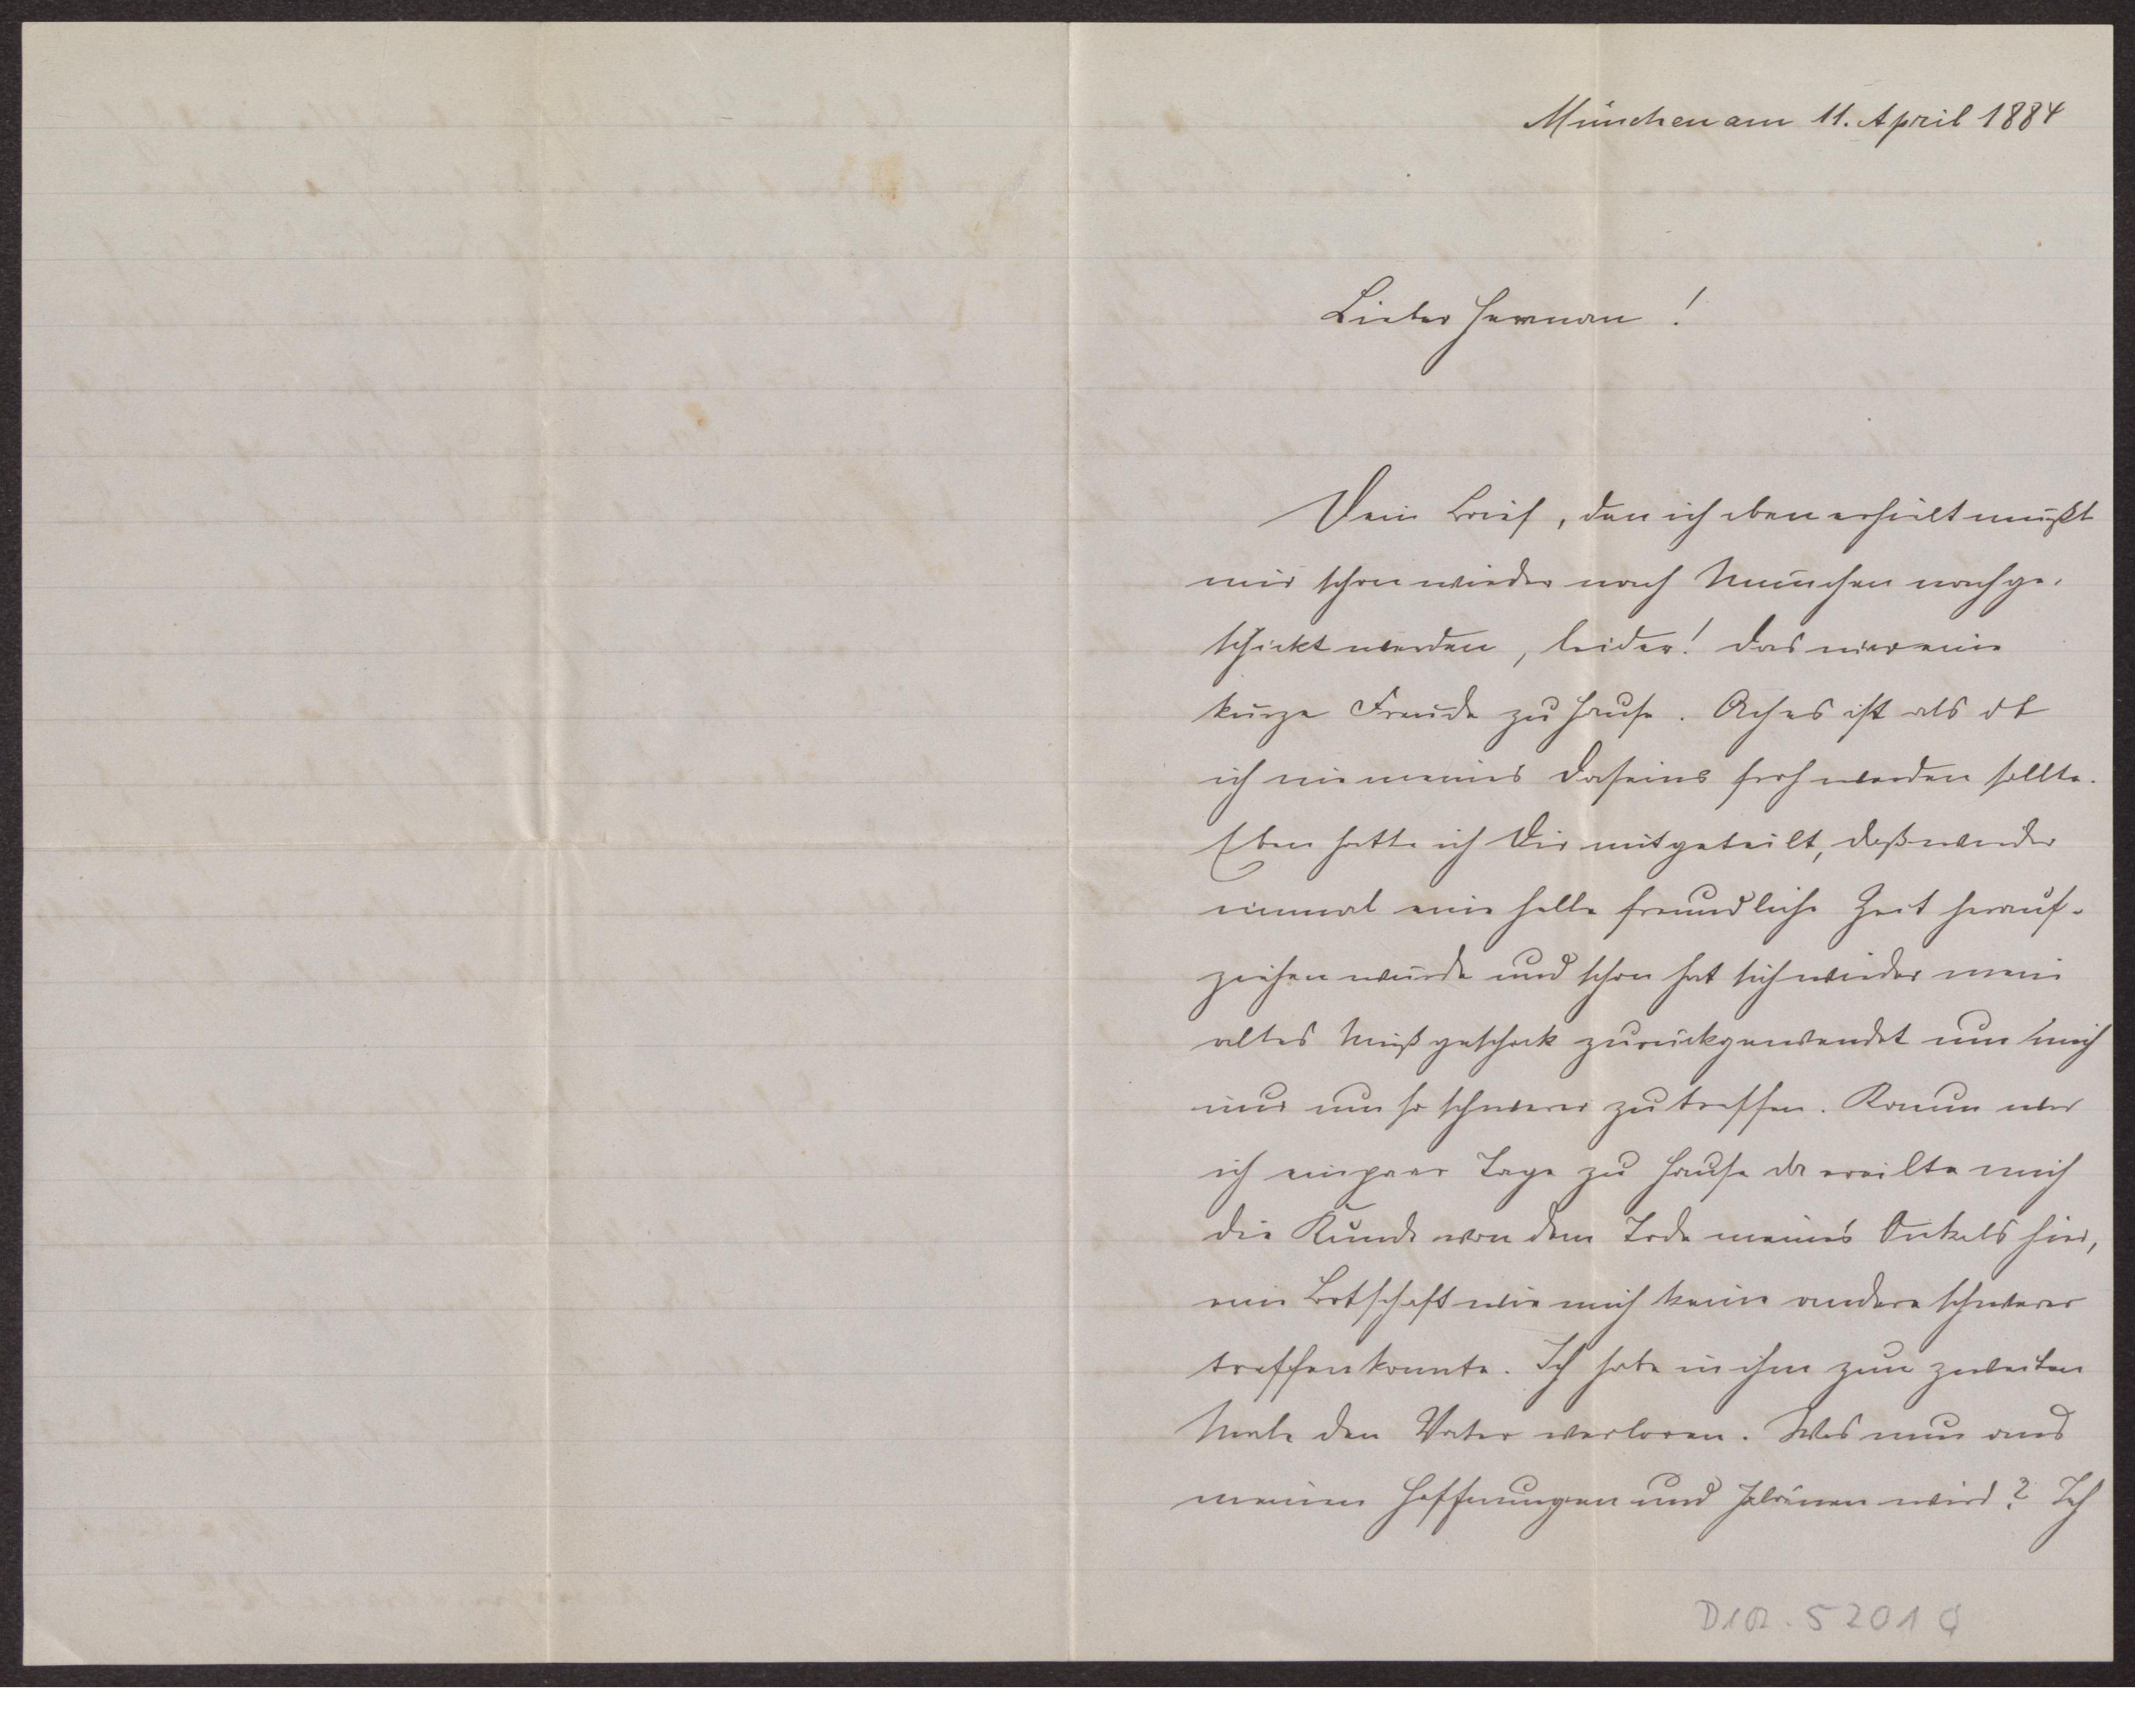 München am 11. April 1884
Lieber Herman !
Dein Brief, den ich eben erhielt mußt
mir schon wieder nach München nachge-
schickt werden, leider! Das war eine
kurze Freude zu Hause. Ach es ist als ob
ich nie meines Daseins froh werden sollte.
Eben hatte ich Dir mitgeteilt, daß wieder
einmal eine helle freundliche Zeit herauf-
ziehen würde und schon hat sich wieder mein
altes Mißgeschick zurückgewendet um mich
nur um so schwerer zu treffen. Kaum war
ich ein paar Tage zu Hause da ereilte mich
die Kunde von dem Tode meines Onkels hier,
eine Botschaft wie mich keine andere schwerer
treffen konnte. Ich habe in ihm zum zweiten
Male den Vater verloren. Was nun aus
meinen Hoffnungen und wird? Ich
52010